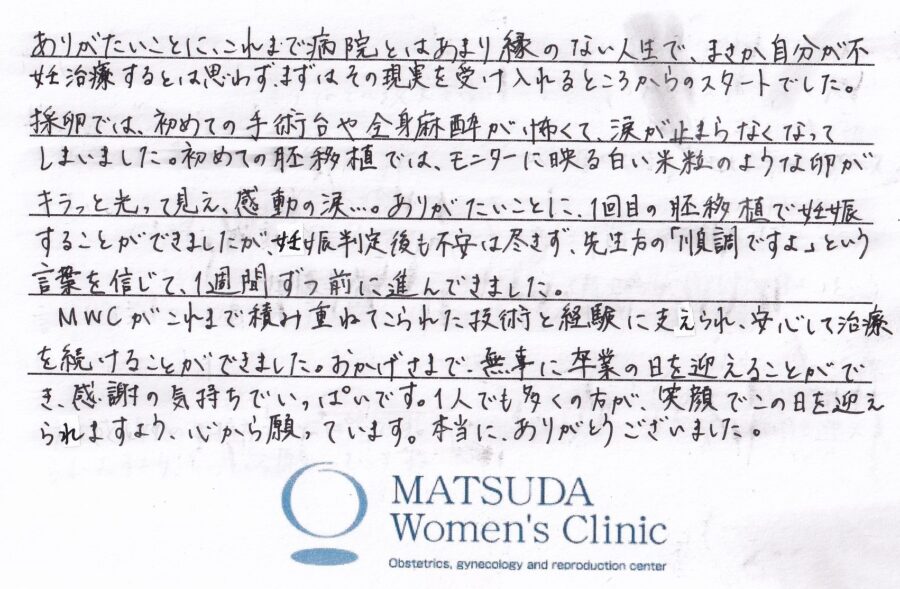 ありがたいことに、これまで病院とはあまり縁のない人生で、まさか自分が不
妊治療するとは思わず、まずはその現実を受け入れるところからのスタートでした。
採卵では、初めての手術台や全身麻酔が怖くて、涙が止まらなくなって
しまいました。初めての胚移植では、モニターに映る白い米粒のような卵が
キラっと光って見え、感動の涙…。ありがたいことに、1回目の胚移植で妊娠
することができましたが、妊娠判定後も不安は尽きず、先生方の「順調ですよ」という
言葉を信じて、1週間ずつ前に進んできました。
MWCがこれまで積み重ねてこられた技術と経験に支えられ、安心して治療
を続けることができました。おかげさまで、無事に卒業の日を迎えることがで
き、感謝の気持ちでいっぱいです。1人でも多くの方が、笑顔でこの日を迎え
られますよう、心から願っています。本当に、ありがとうございました。
MATSUDA
Women's Clinic
Obstetrics, gynecology and reproduction center